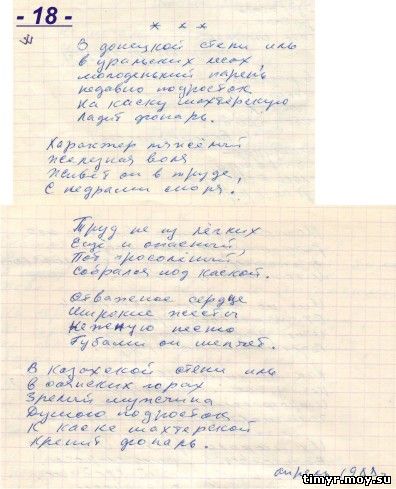 - 18 -
* * *
В донецкой степи иль
в уральских лесах,
молоденький парень,
недавно подросток
На каску шахтёрскую
Ладит фонарь.
Характер тяжёлый
Железная воля
Живёт он в труде,
С недрами споря.
Труд не из лёгких
Ещё и опасный,
Пот просолёный,
Собрался под каской.
Отважное сердце
Широкие жесты
Нежную песню
Губами он шепчет.
В казахской степи иль
в саянских горах
Зрелый мужчина
Душою подросток
К каске шахтёрской
Крепит фонарь.
апрель
timyr.moy.su